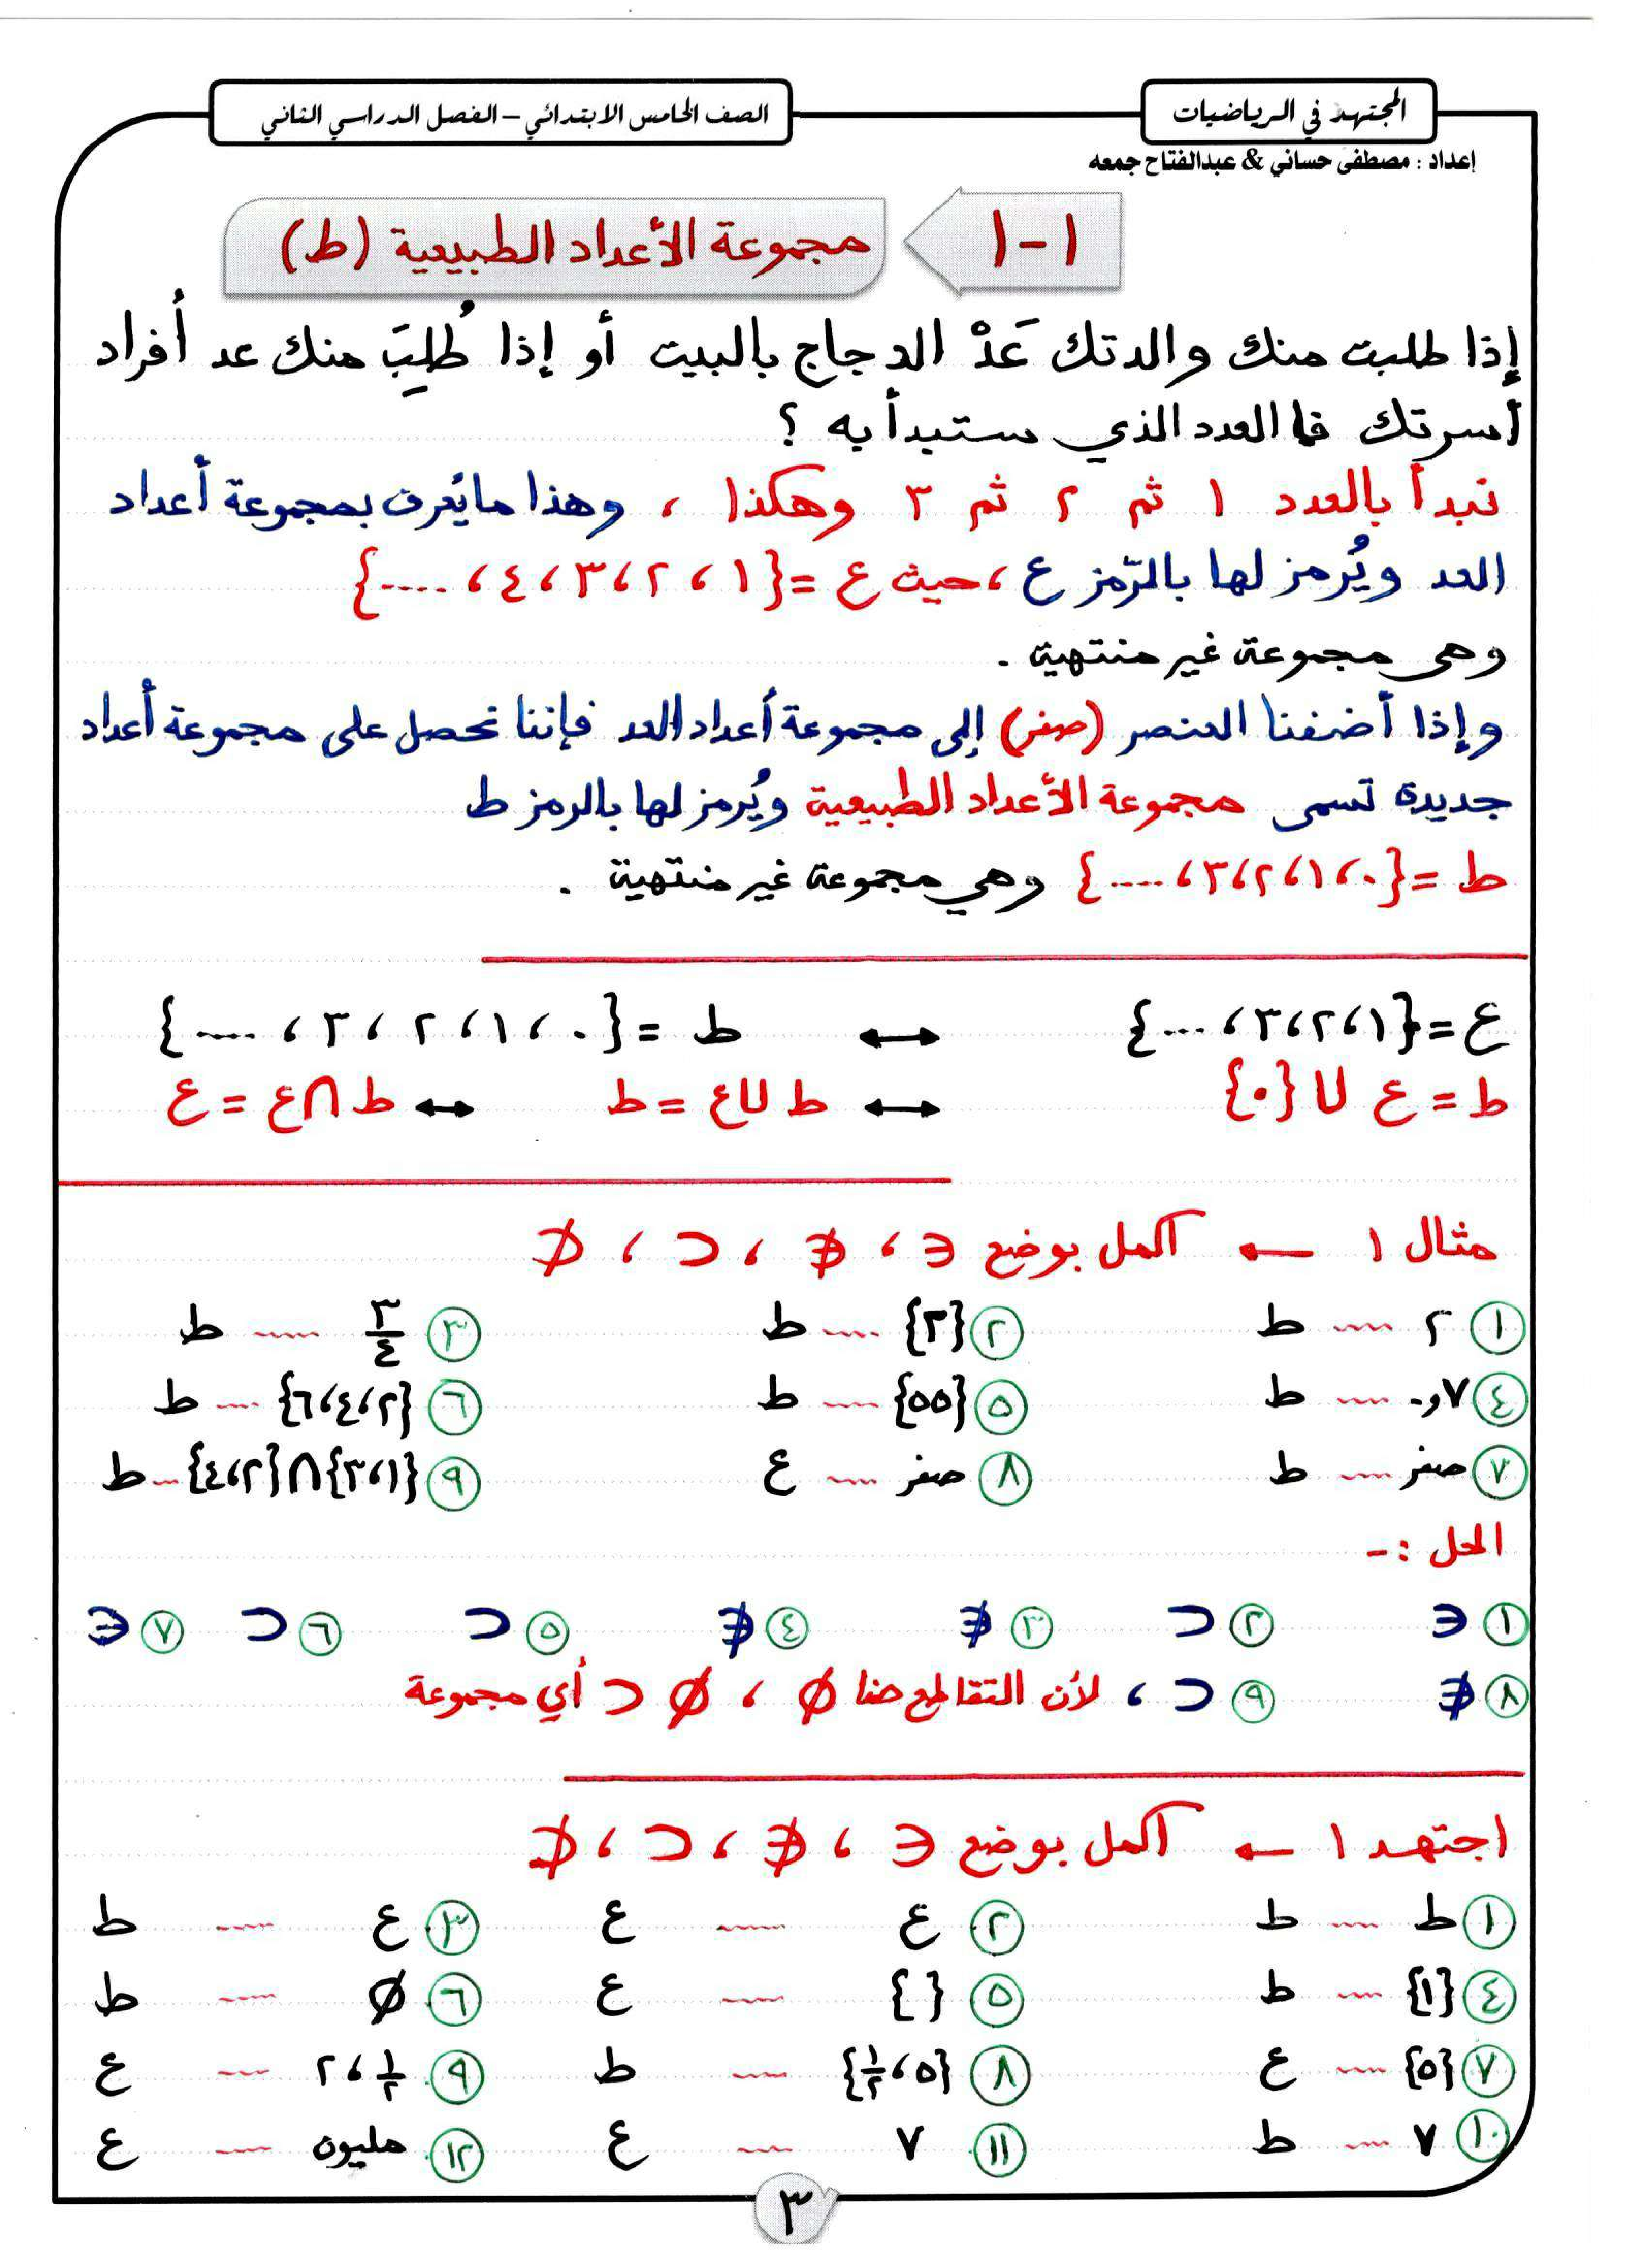 المجتهد في الرياضيات
الصف الخامس الابتدائي – الفصل الدراسي الثاني
إعداد : مصطفى حساني & عبدالفتاح جمعه
١-١ مجموعة الأعداد الطبيعية (ط)
إذا طلبت منك والدتك عَدْ الدجاج بالبيت أو إذا طُلِبَ منك عد أُفراد
أسرتك فما العدد الذي ستبدأ به ؟
نبدأ بالعدد ١ ثم ٢ ثم ٣ وهكذا ، وهذا ما يُعرف بمجموعة أعداد
العد ويُرمز لها بالرّمز ع ، حيث ع = {١ ، ٢ ، ٣ ، ٤ ، ....}
وهى مجموعة غير منتهية .
وإذا أضفنا العنصر (صفر) إلى مجموعة أعداد العد فإننا نحصل على مجموعة أعداد
جديدة تسمى مجموعة الأعداد الطبيعية ويُرمز لها بالرمز ط
ط = {٠ ، ١ ، ٢ ، ٣ ، ....} وهي مجموعة غير منتهية .
ع = {١ ، ٢ ، ٣ ، ...} ↔ ط = {٠ ، ١ ، ٢ ، ٣ ، .....}
ط = ع ∪ {٠} ↔ ط ∪ ع = ط ↔ ط ∩ ع = ع
مثال ١ ← أكمل بوضع ∈ ، ∉ ، ⊂ ، ⊄
١ ٢ .... ط ٢ {٣} .... ط ٣ ٣/٤ .... ط
٤ ٧و٠ .... ط ٥ {٥٥} .... ط ٦ {٢ ، ٤ ، ٦} .... ط
٧ صفر .... ط ٨ صفر .... ع ٩ {١ ، ٣} ∩ {٢ ، ٤} ... ط
الحل :-
١ ∈ ٢ ⊂ ٣ ∉ ٤ ∉ ٥ ⊂ ٦ ⊂ ٧ ∈
٨ ∉ ٩ ⊂ ، لأن التقاطع هنا ∅ ، ∅ ⊂ أي مجموعة
اجتهد ١ ← أكمل بوضع ∈ ، ∉ ، ⊂ ، ⊄
١ ط .... ط ٢ ع .... ع ٣ ع .... ط
٤ {١} .... ط ٥ { } .... ع ٦ ∅ .... ط
٧ {٥} .... ع ٨ {٥ ، ١/٢} .... ط ٩ ١/٢ ، ٢ .... ع
١٠ ٧ .... ط ١١ ٧ .... ع ١٢ مليون .... ع
٣